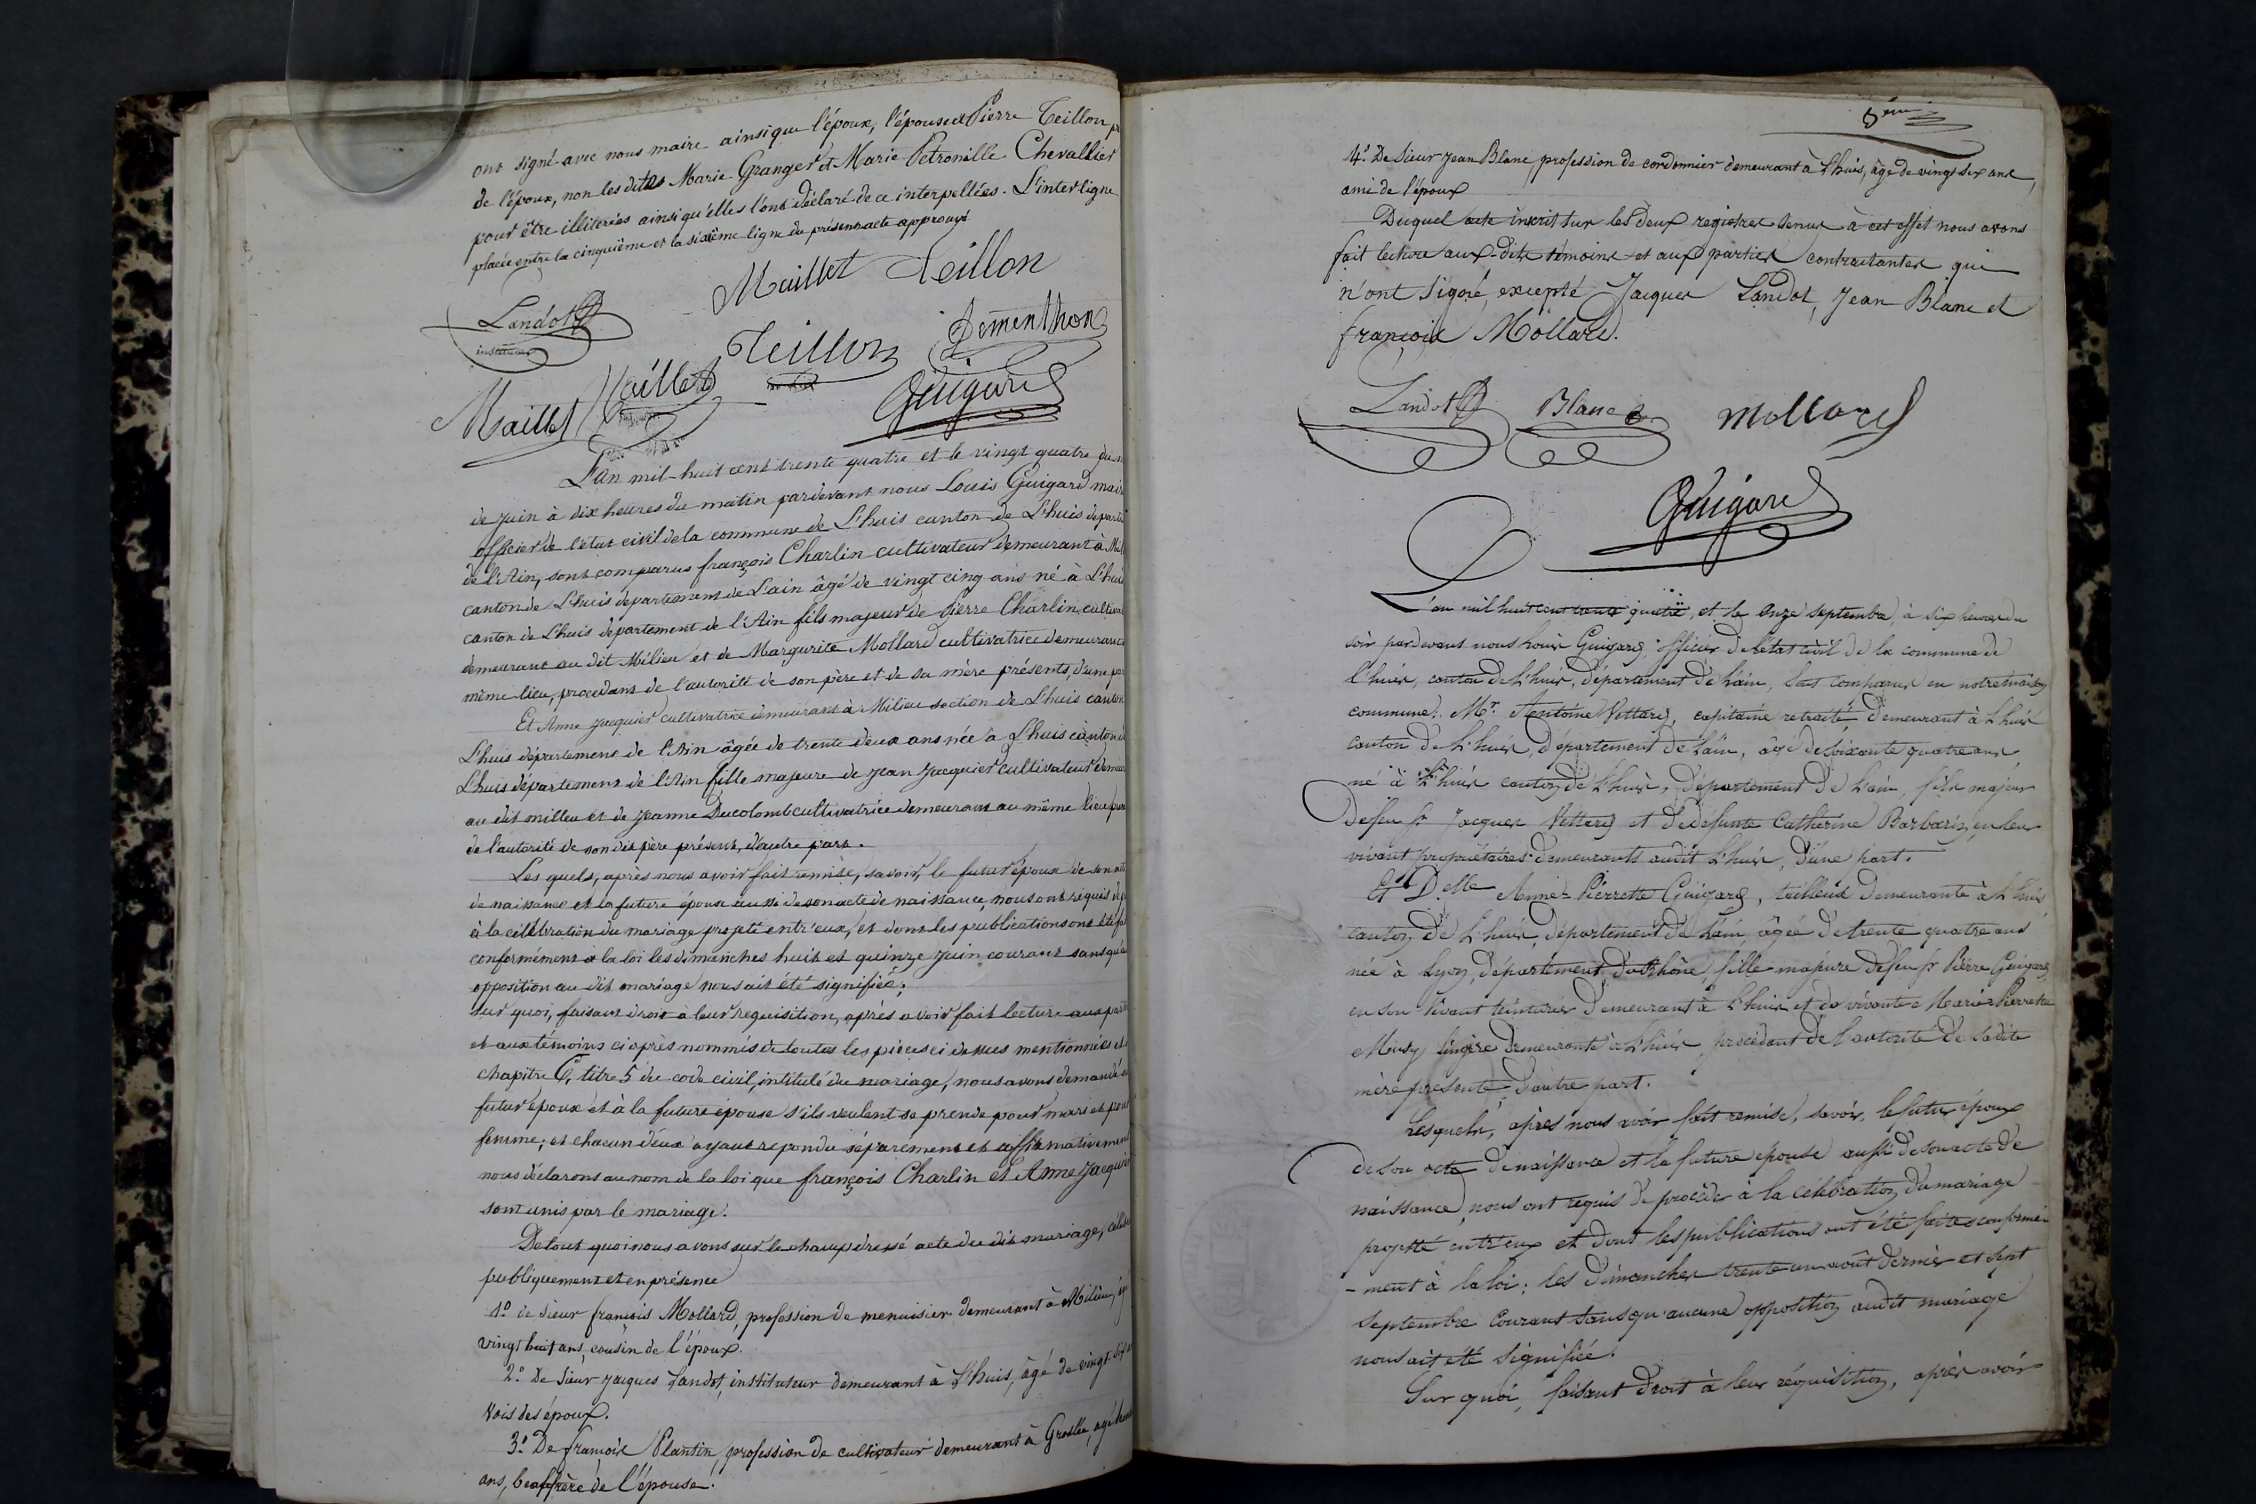 ont signé avec nous maire ainsi que l'époux, l'épouse et Pierre Teillon
de l'époux, non les dites Marie Granger et Marie Petronille Chevallier
pour être illiterées ainsi qu'elles l'ont déclaré de ce interpellées. L'interligne
placée entre la cinquième et la sixième ligne du présent acte approuvé
Maillet Teillon
Landot
instituteur
Teillon Dementhon
Maillet Maillet Guigard
L'an mil huit cent trente quatre et le vingt quatre du
de juin à dix heures du matin pardevant nous Louis Guigard mair
officier de l'état civil de la commune de L'huis canton de L'huis départ
de l'Ain, sont comparus françois Charlin cultivateur demeurant à Mil
canton de L'huis département de L'ain âgé de vingt cinq ans né à L'huis
canton de L'huis département de l'Ain fils majeur de Pierre Charlin cultiva
demeurant au dit Milieu et de Margurite Mollard cultivatrice demeurant
même lieu, procédant de l'autorité de son père et de sa mère présents, d'une pa
Et Anne Jacquier cultivatrice demeurant à Milieu section de L'huis canton
L'huis département de l'Ain âgée de trente deux ans née à L'huis canton d
L'huis département de l'Ain fille majeure de Jean Jacquier cultivateur demeu
au dit milieu et de Jeanne Ducolomb cultivatrice demeurant au même lieu
de l'autorité de son dit père présent, d'autre part.
Les quels, après nous avoir fait remise, savoir, le futur époux de son acte
de naissance et la future épouse aussi de son acte de naissance, nous ont requis de
à la célébration du mariage projeté entr'eux, et dont les publications ont été fa
conformément à la loi les dimanches huit et quinze juin courant sans qu'a
opposition au dit mariage nous ait été signifiée;
sur quoi, faisant droit à leur requisition, après avoir fait lecture aux part
et aux témoins ci après nommés de toutes les pièces ci dessus mentionnées et
chapitre 6, titre 5 du code civil, intitulé du mariage, nous avons demandé a
futur époux et à la future épouse s'ils veulent se prende pour mari et pour
femme; et chacun d'eux ayant repondu séparément et affirmativement
nous déclarons au nom de la loi que françois Charlin et Anne Jacquier
sont unis par le mariage.
De tout quoi nous avons sur le champ dressé acte du dit mariage, célébré
publiquement et en présence
1º de sieur françois Mollard, profession de menuisier demeurant à Milieu, âgé
vingt huit ans, cousin de l'époux.
2º De sieur Jacques Landot, instituteur demeurant à L'huis, âgé de vingt six
vois des époux.
3º De françois Plantin, profession de cultivateur demeurant à Groslée, âgé
ans, beaufrère de l'épouse.
8ème
4º De sieur Jean Blanc, profession de cordonnier demeurant à L'huis, âgé de vingt six ans,
ami de l'époux
Duquel acte inscrit sur les deux registres tenus à cet effet nous avons
fait lecture aux-dits témoins et aux parties contractantes qui
n'ont signé, excepté Jacques Landot, Jean Blanc et
françois Mollard.
Landot Blanc Mollard
Guigard
L'an mil huit cent trente quatre, et le onze septembre, à six heures du
soir pardevant nous Louis Guigard, officier de l'état civil de la commune de
l'huis, canton de L'huis, département de l'ain, sont comparus en notre maison
commune: Mr. Antoine Vettard, capitaine retraité demeurant à L'huis
canton de L'huis, département de l'ain, âgé de soixante quatre ans
né à L'huis canton de L'huis, département de l'ain, fils majeur
de feu Sr Jacques Vettard et de defunte Catherine Barbarin, en leur
vivant propriétaires demeurants audit L'huis, d'une part.
Et Delle Anne-Pierrette Guigard, tailleuse demeurante à L'huis
canton de L'huis, département de l'ain, âgée de trente quatre ans
née à Lyon, département du Rhône, fille majeure de feu Sr Pierre Guigard
en son vivant teinturier demeurant à L'huis et de vivante Marie Pierrette
lingère demeurante à L'huis, procédant de l'autorité de sadite
mère présente, d'autre part.
Lesquels, après nous avoir fait remise, savoir, le futur époux
de son acte de naissance et la future épouse aussi de son acte de
naissance, nous ont requis de procéder à la célébration du mariage
projetté entr'eux et dont les publications ont été faites conformé-
-ment à la loi; les dimanches trente un août dernier et sept
septembre courant sans qu'aucune opposition audit mariage
nous ait été signifiée.
Sur quoi, faisant droit à leur réquisition, après avoir